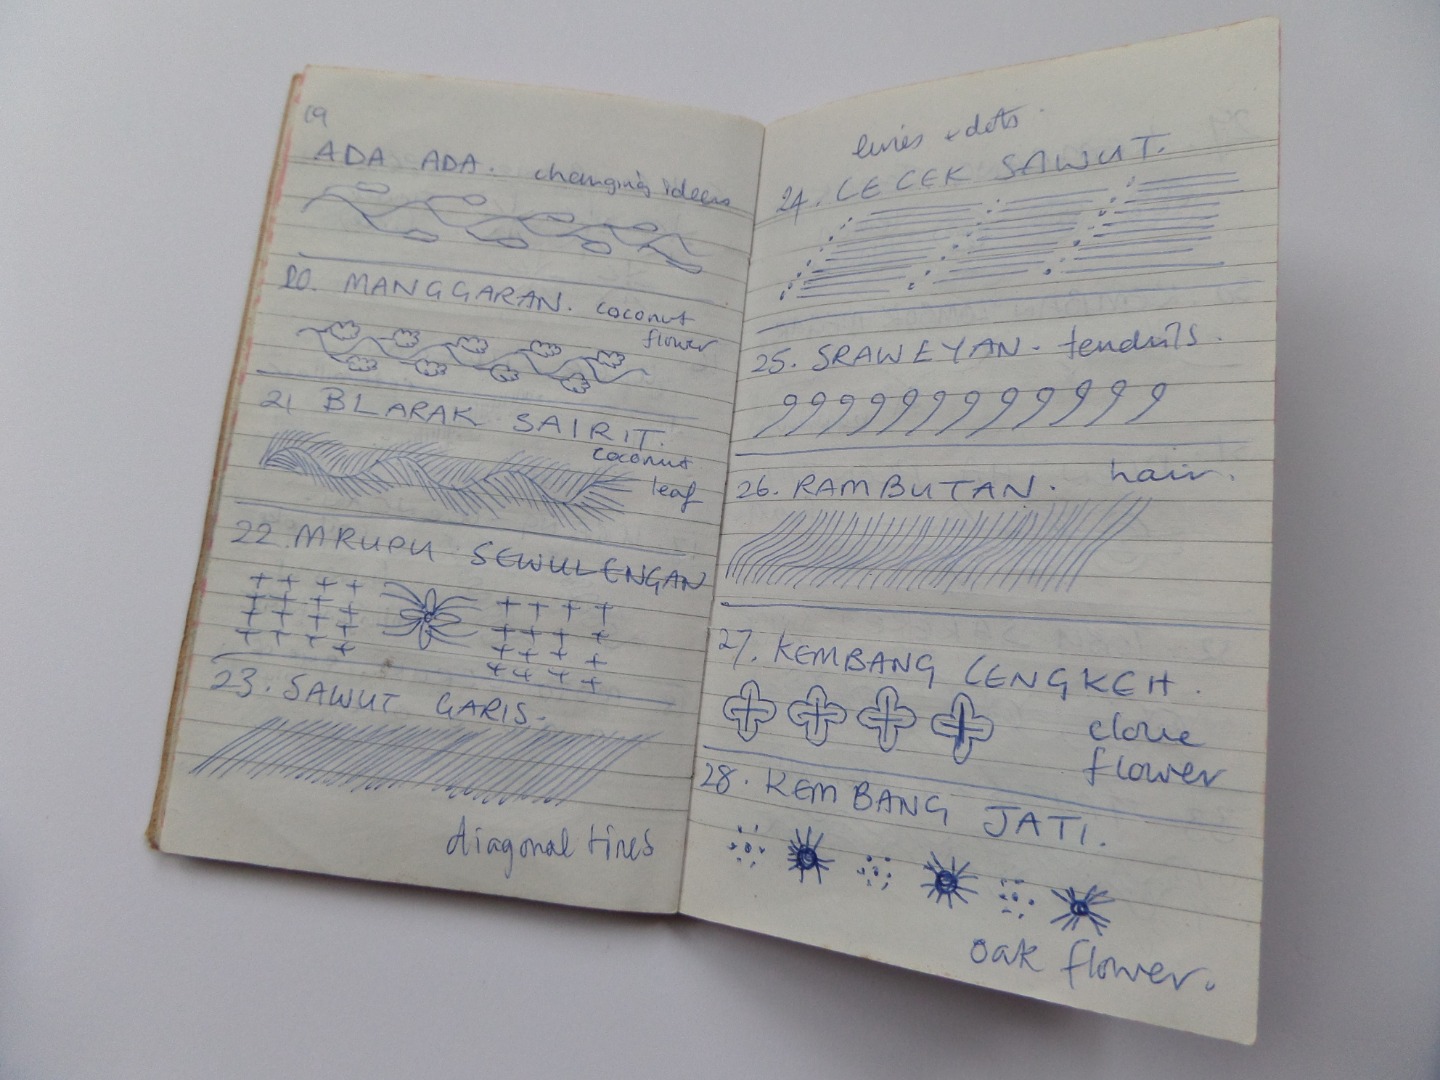 19
ADA ADA. changing ideas
20. MANGGARAN. coconut
flower
21 BLARAK SAIRIT.
coconut
leaf
22. MRUPU SEWULENGAN
23. SAWUT GARIS.
diagonal lines
lines + dots.
24. CECEK SAWUT.
25. SRAWEYAN. tendrils.
26. RAMBUTAN. hair.
27. KEMBANG CENGKEH.
clove
flower
28. KEMBANG JATI.
oak flower.